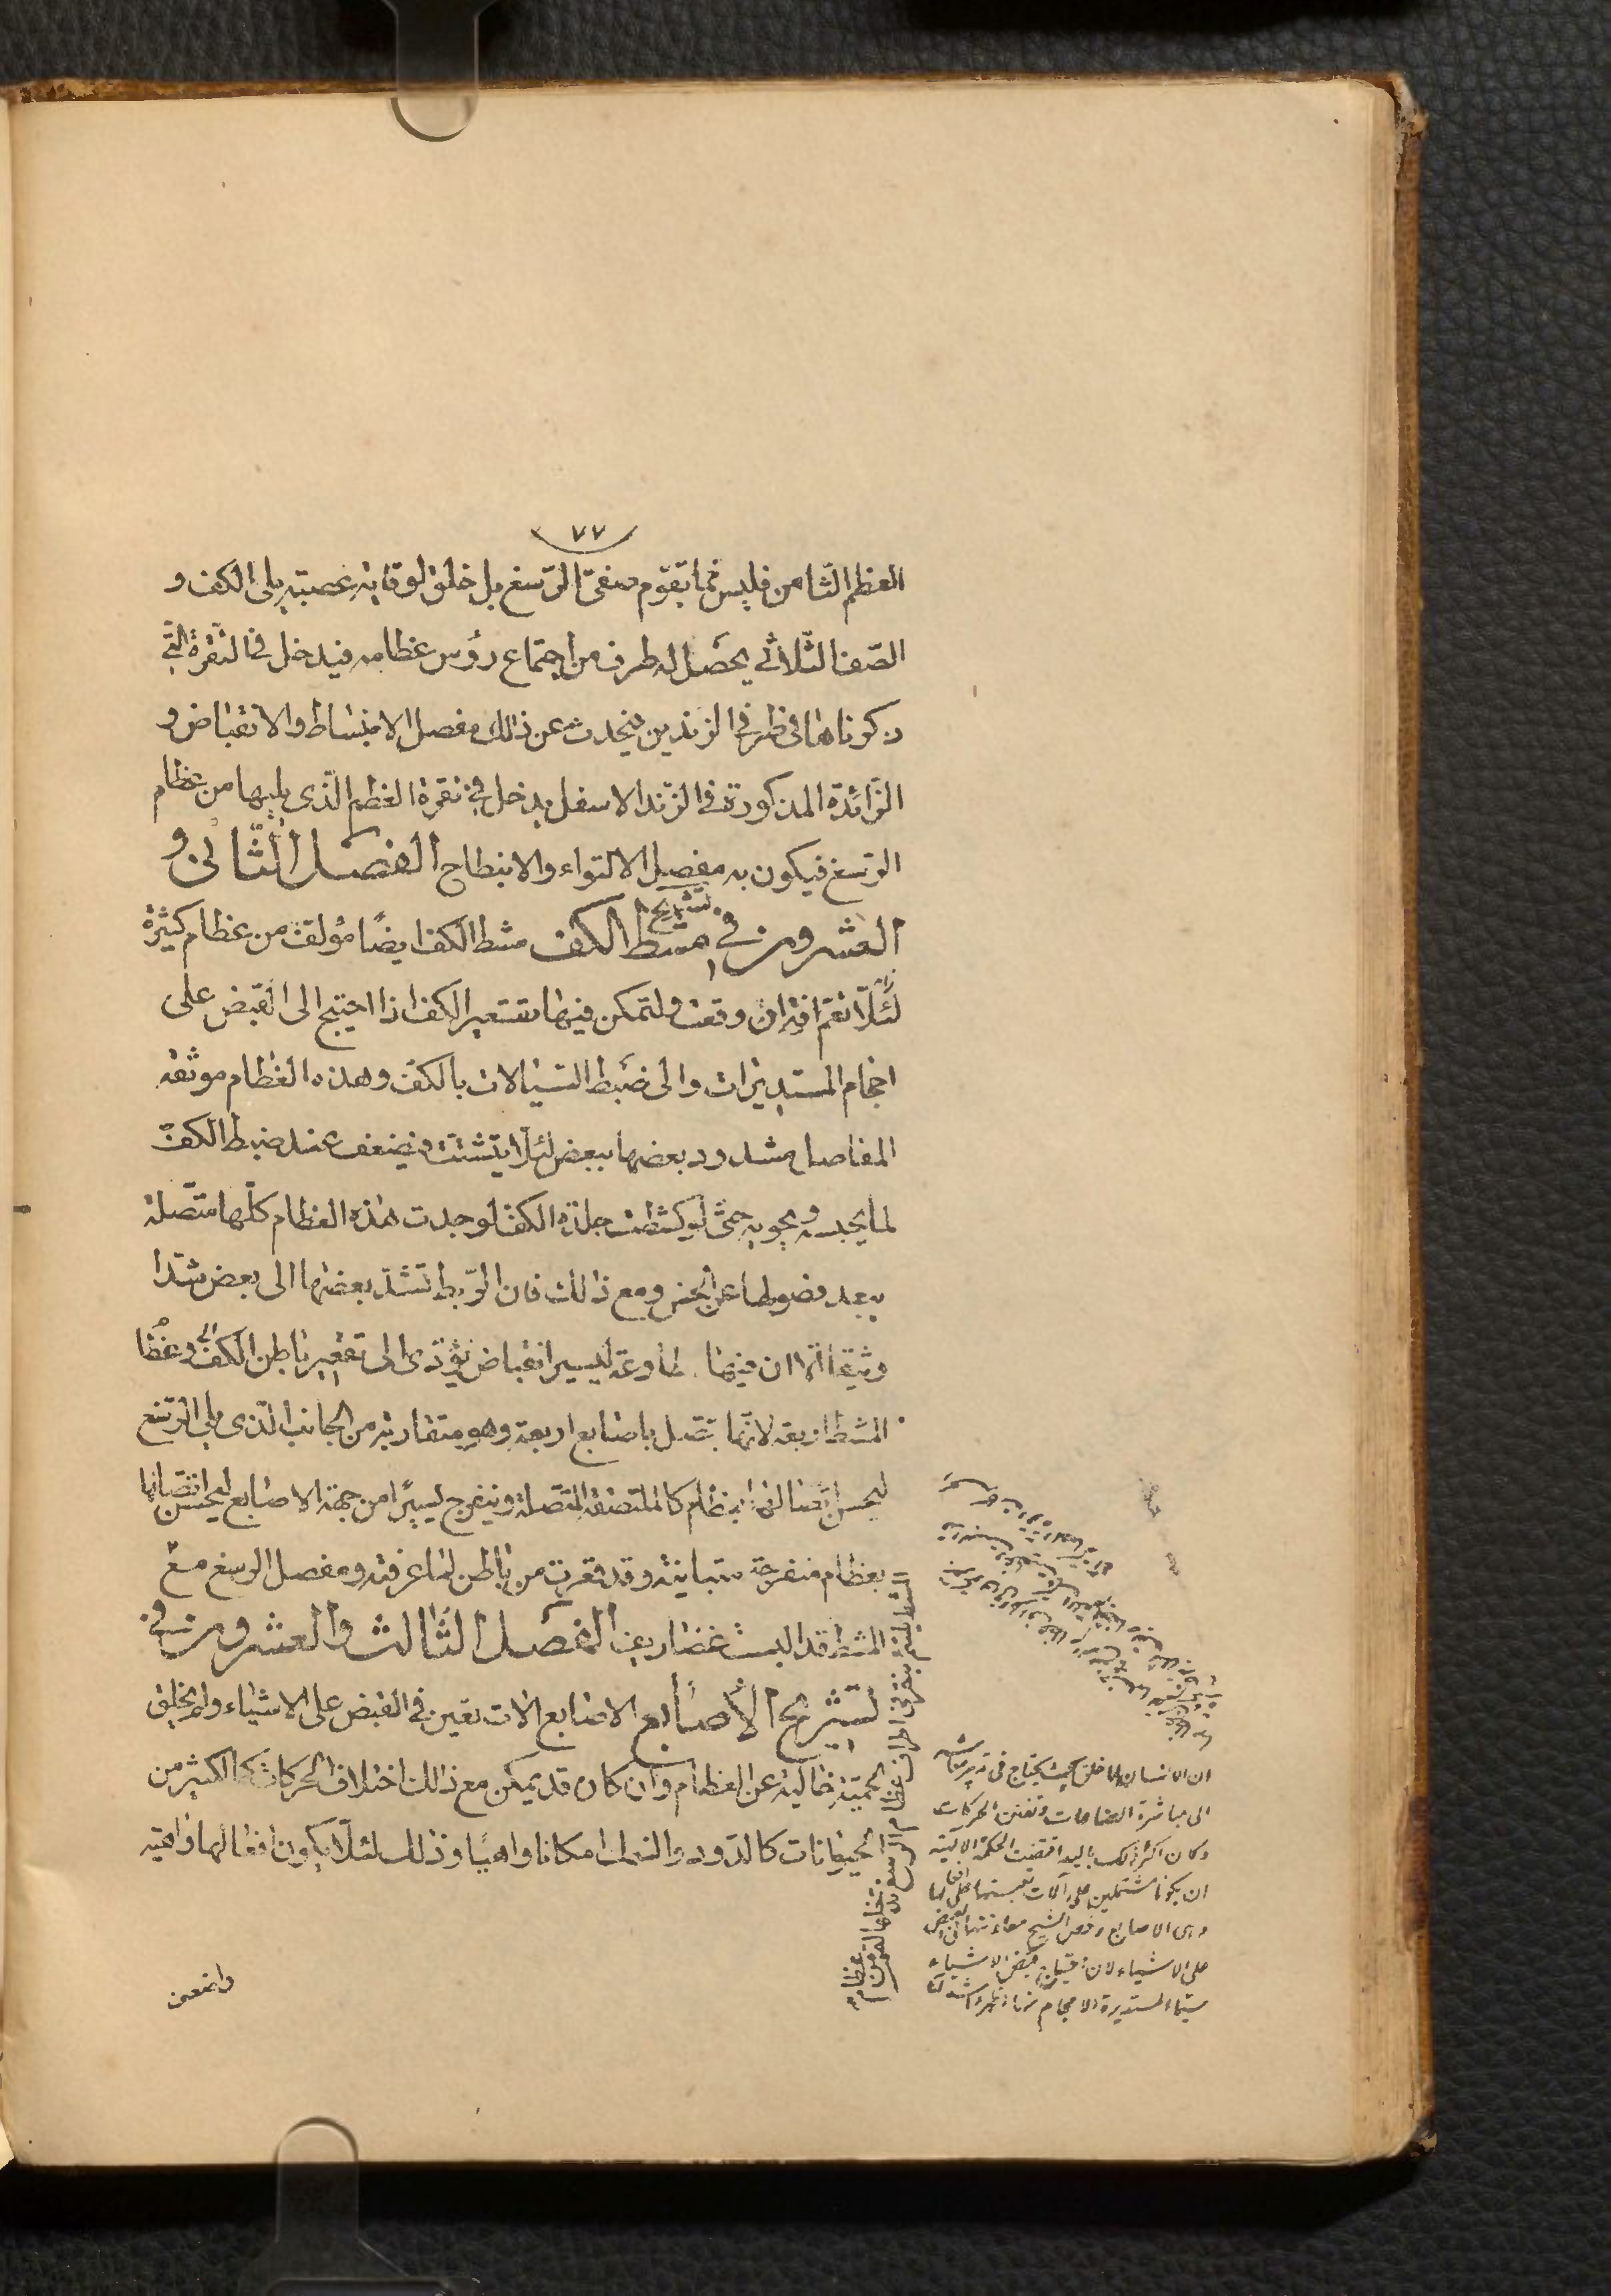 ٧٧
العظم الثّامن فليس ممّا تقوّم صفىّ الرّسغ بل خلق لوقاية عصبة يلى الكف و
الصّف الثّلاثى يحصل له طرف من اجتماع رؤس عظامه فيدخل فى النّقرة الّتى
ذكرناها فى طرفى الزندين فيحدث عن ذلك مفصل الانبساط والانقباض و
الزّائدة المذكورة فى الزّند الاسفل يدخل فى نقرة العظم الّذى يليها من عظام
الرّسغ فيكون به مفصل الالتواء والانبطاح الفصل الثّانى و
العشرون فى تشريح مشط الكف مشط الكف ايضًا مؤلف من عظام كثيرة
لئلّا تعمّ افة ان وقعت وليتمكن فيها تقتعير الكف اذا احتيج الى القبض على
احجام المستديرات والى ضبط السّيالات بالكف وهذه العظام موثقة
المفاصل مشدود بعضها ببعض لئلّا يتشتت فيضعف عند ضبط الكفّ
لما يحبسه ويحويه حتّى لو كشطت جلدة الكف لوجدت هذه العظام كلّها متّصلة
يبعد فصولها عن الحس ومع ذلك فان الرّبط تشدّ بعضها الى بعض شدّا
وثيقا الّا ان فيها مطاوعة ليسير انقباض يؤدّى الى تقعير باطن الكف وعظا
المشط اربعة لانّها تتصل باصابع اربعة وهو متقاربة من الجانب الّذى يلى الرّسغ
ليحسن اتصالها بعظام كالملتصقة المتّصلة وينفرج يسيرًا من جهة الاصابع ليحسن اتصالها
بعظام منفرجة متباينة وقد قعرت من باطن لما عرفته ومفصل الرسغ مع
المشط قد البست غضاريف الفصل الثالث والعشرون فى
تشريح الأصابع الاصابع الات تعين فى القبض على الاشياء ولم يخلق
لحميّة خالية عن العظام وان كان قد يمكن مع ذلك اختلاف الحركات كما لكثير من
الحيوانات كالدّود والسّمك امكانا واهيًا وذلك لئلّا يكون افعالها واهية
واضعف
ان الانسان لما خلق بحيث يحتاج فى تدبير معاشه
الى مباشرة الصناعات وتفنن الحركات
وكان اكثر ذلك باليد اقتضت الحكمة الالهية
ان يكونا مشتملين على آلات تعينها على افعالها
وهى الاصابع وخص الشيخ معاونتها فى القبض
على الاشياء لان قبض الاشياء
سيما المستديرة الاحجام